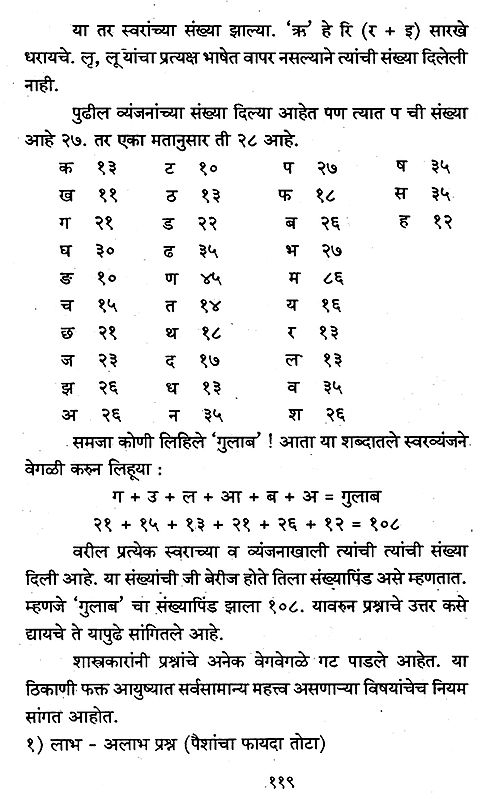 या तर स्वरांच्या संख्या झाल्या. ‘ऋ’ हे रि (र + इ) सारखे
धरायचे. लृ, लॄ यांचा प्रत्यक्ष भाषेत वापर नसल्याने त्यांची संख्या दिलेली
नाही.
पुढील व्यंजनांच्या संख्या दिल्या आहेत पण त्यात प ची संख्या
आहे २७. तर एका मतानुसार ती २८ आहे.
क १३ ट १० प २७ ष ३५
ख ११ ठ १३ फ १८ स ३५
ग २१ ड २२ ब २६ ह १२
घ ३० ढ ३५ भ २७
ङ १० ण ४५ म ८६
च १५ त १४ य १६
छ २१ थ १८ र १३
ज २३ द १७ ल १३
झ २६ ध १३ व ३५
अ २६ न ३५ श २६
समजा कोणी लिहिले ‘गुलाब’ ! आता या शब्दातले स्वरव्यंजने
वेगळी करुन लिहूया :
ग + उ + ल + आ + ब + अ = गुलाब
२१ + १५ + १३ + २१ + २६ + १२ = १०८
वरील प्रत्येक स्वराच्या व व्यंजनाखाली त्यांची त्यांची संख्या
दिली आहे. या संख्यांची जी बेरीज होते तिला संख्यापिंड असे म्हणतात.
म्हणजे ‘गुलाब’ चा संख्यापिंड झाला १०८. यावरुन प्रश्नाचे उत्तर कसे
द्यायचे ते यापुढे सांगितले आहे.
शास्त्रकारांनी प्रश्नांचे अनेक वेगवेगळे गट पाडले आहेत. या
ठिकाणी फक्त आयुष्यात सर्वसामान्य महत्त्व असणाऱ्या विषयांचेच नियम
सांगत आहोत.
१) लाभ - अलाभ प्रश्न (पैशांचा फायदा तोटा)
११९